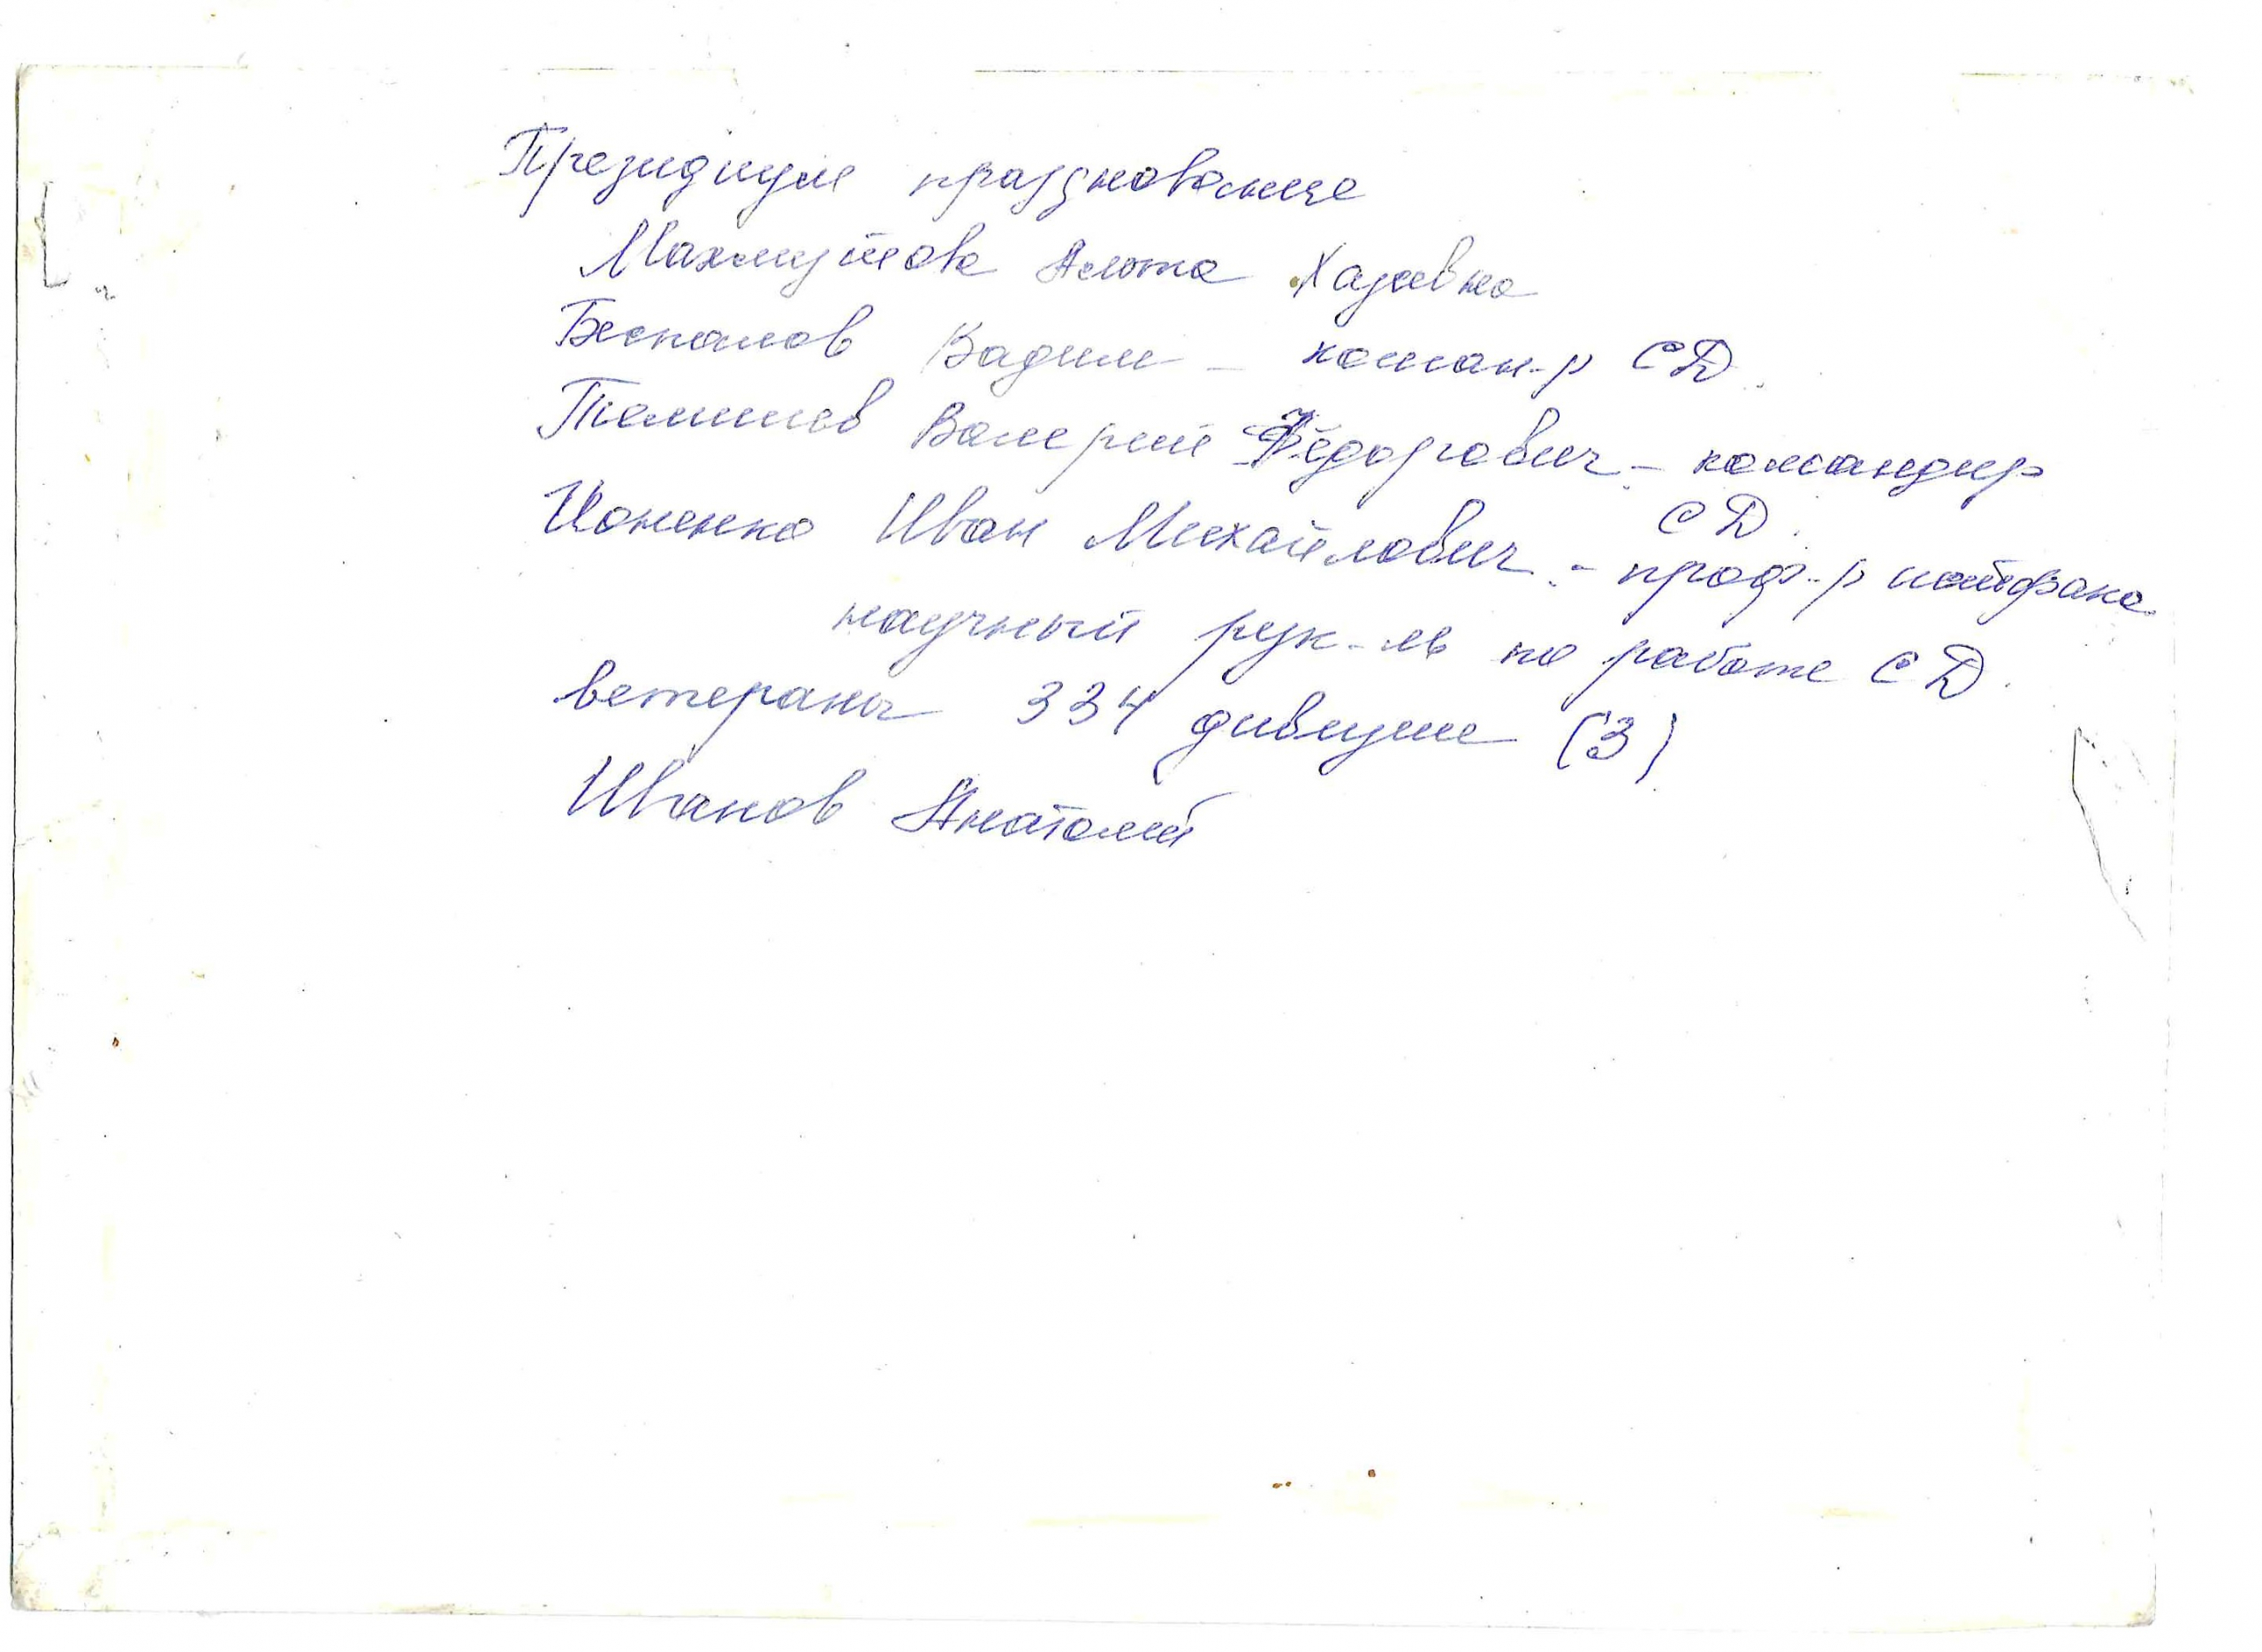 Президиум празднования
Махмутова Анюта Хазеевна
Беспалов Вадим – коман-р СД.
Телишев Валерий Фёдорович – командир
СД.
Ионенко Иван Михайлович – проф-р истфака
научный рук-ль по работе СД.
ветераны 334 дивизии (3)
Иванов Анатолий